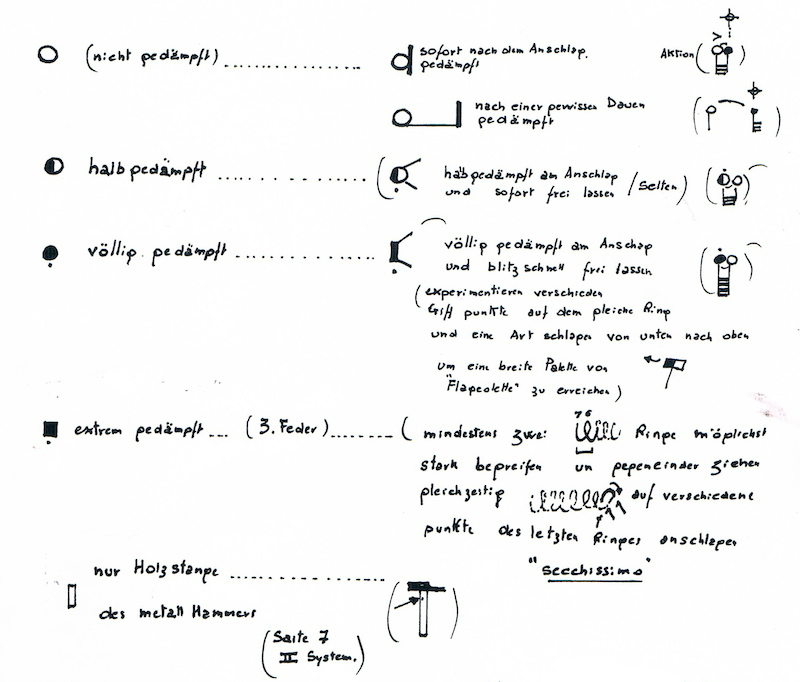 (nicht gedämpft) ....................
sofort nach dem Anschlag.
gedämpft
Aktion (
)
nach einer gewissen Dauer
gedämpft
halbgedämpft ....................
( habgedämpft am Anschlag
und sofort frei lassen / selten)
völlig gedämpft ....................
völlig gedämpft am Anschag
und blitzschnell frei lassen
(experimentieren verschieden
Giff punkte auf dem gleiche Ring
und eine Art schlagen von unten nach oben
um eine breite Palette von
"Flageolette" zu erreichen)
extrem gedämpft ... (3. Feder) ........... ( mindestens zwei 76 Ringe möglichst
stark begreifen un gegeneinder ziehen
gleichzeitig auf verschiedene
punkte des letzten Ringes anschlagen
"Secchissimo"
nur Holzstange ....................
des metall Hammers
(Saite 7
II System.)